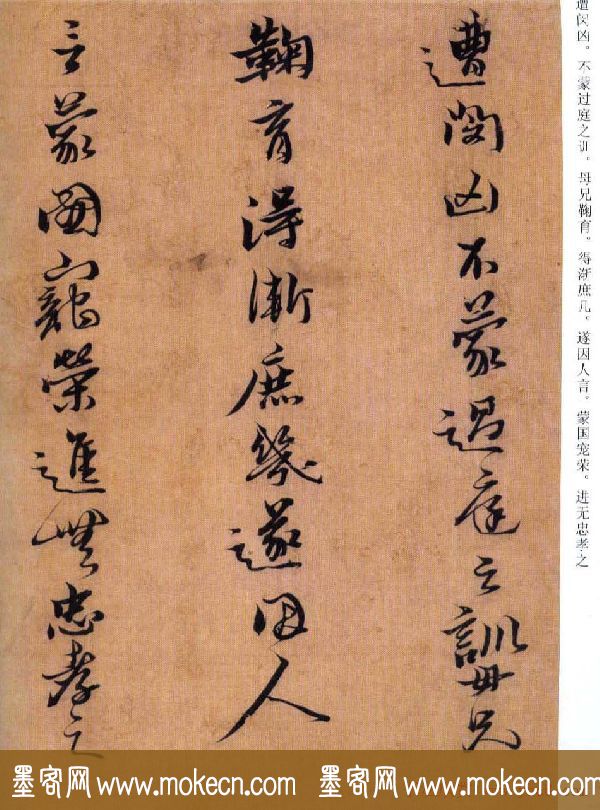 遭閔凶不蒙過庭之訓母兄
鞠育得漸庶幾遂因人
言蒙國寵榮進無忠孝之
遭闵凶。不蒙过庭之训。母兄鞠育。得渐庶几。遂因人言。蒙国宠荣。进无忠孝之
墨客网 www.mokecn.com 墨客网 www.mokecn.com